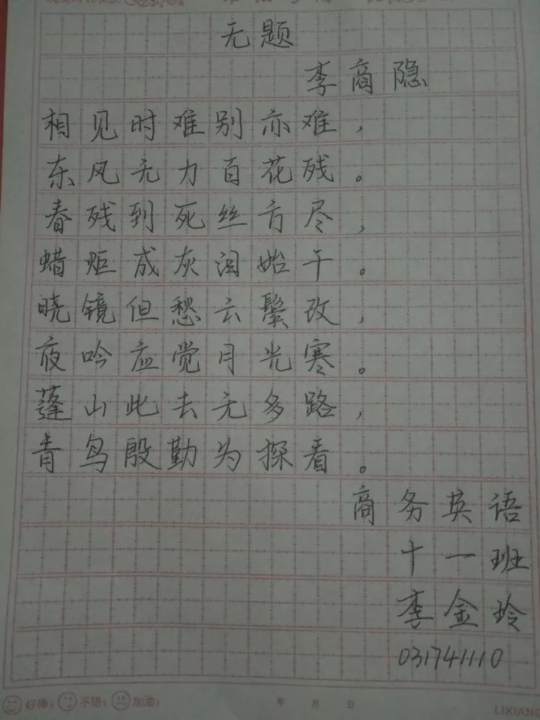 无题
李商隐
相见时难别亦难，
东风无力百花残。
春残到死丝方尽，
蜡炬成灰泪始干。
晓镜但愁云鬓改，
夜吟应觉月光寒。
蓬山此去无多路，
青鸟殷勤为探看。
商务英语
十一班
李金玲
031741110
好棒！ 不错！ 加油！ 年 月 日 LIXIANG